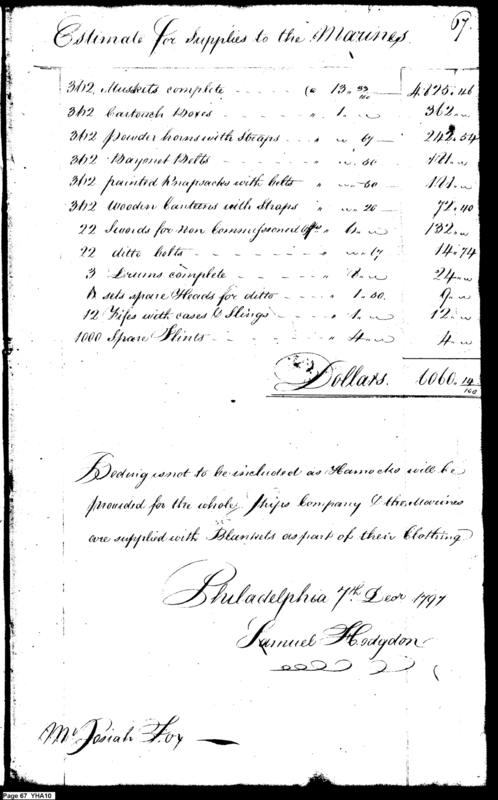 67
Estimate for Supplies to the Marines.
362 Muskets complete - - - - - @ 13. 33/100 4825.46
362 Cartouch Boxes - - - - - - " 1. " 362. "
362 powder horns with Straps - - - " " 67 242.54
362 Bayonet Belts - - - - - - " " .50 181. "
362 painted Knapsacks with belts - - " " .50 181. "
362 Wooden Canteens with Straps " " .20 72.40
22 Swords for non Commissioned Offrs " 6. " 132. "
22 ditto belts - - - - - - - " " .67 14.74
3 Drums complete - - - - - - " 8. " 24. "
6 sets spare Heads for ditto - - - - " 1.50. 9. "
12 Fifes with cases & Slings - - - - " 1. " 12. "
1000 Spare Flints - - - - - - " 4. " 4. "
Dollars. 6060. 14/100
Beding is not to be included as Hamocks will be
provided for the whole Ships Company & the Marines
are supplied with Blankets as part of their Clothing
Philadelphia 7th Decr 1797
Samuel Hodgdon
Mr Josiah Fox
Page 67 YHA10